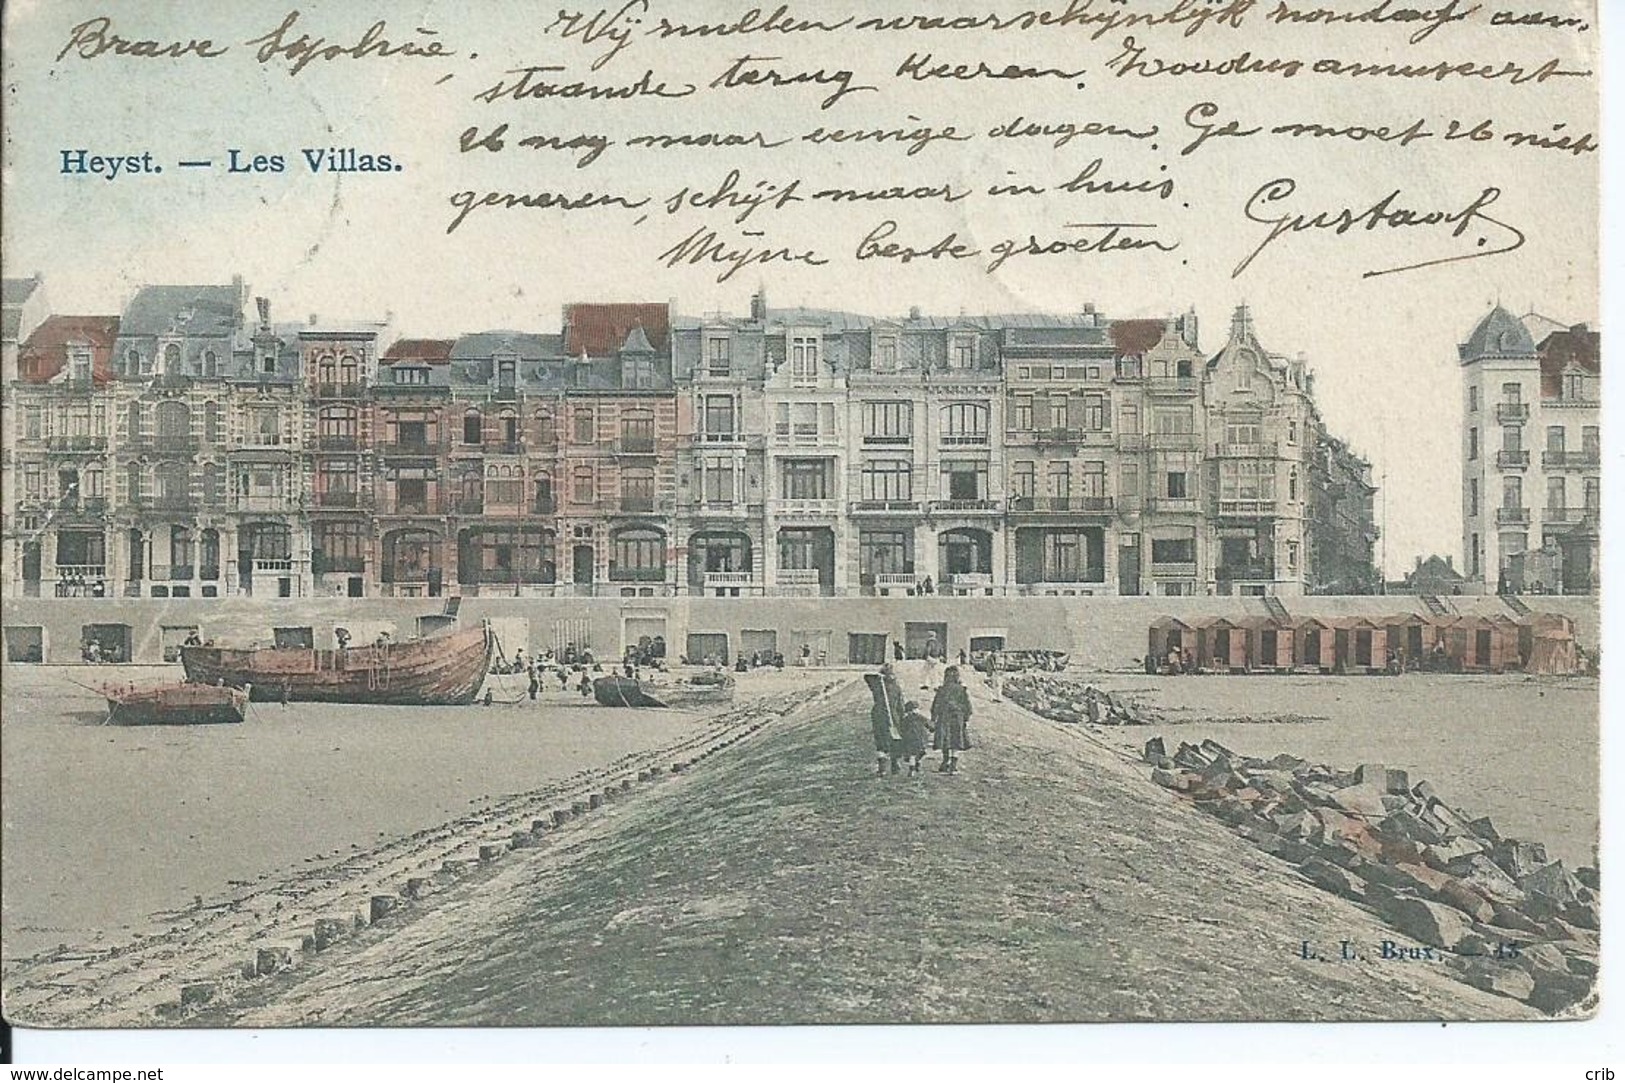 Brave Sophie,
Wij zullen waarschijnlijk zondag aan-
staande terug keeren.
nog maar eenige dagen. Ge moet niet
generen, schijt maar in huis.
Mijne beste groeten.
Gustaaf.
Heyst. — Les Villas.
L. L. Brux. — 13
delcampe.net
crib